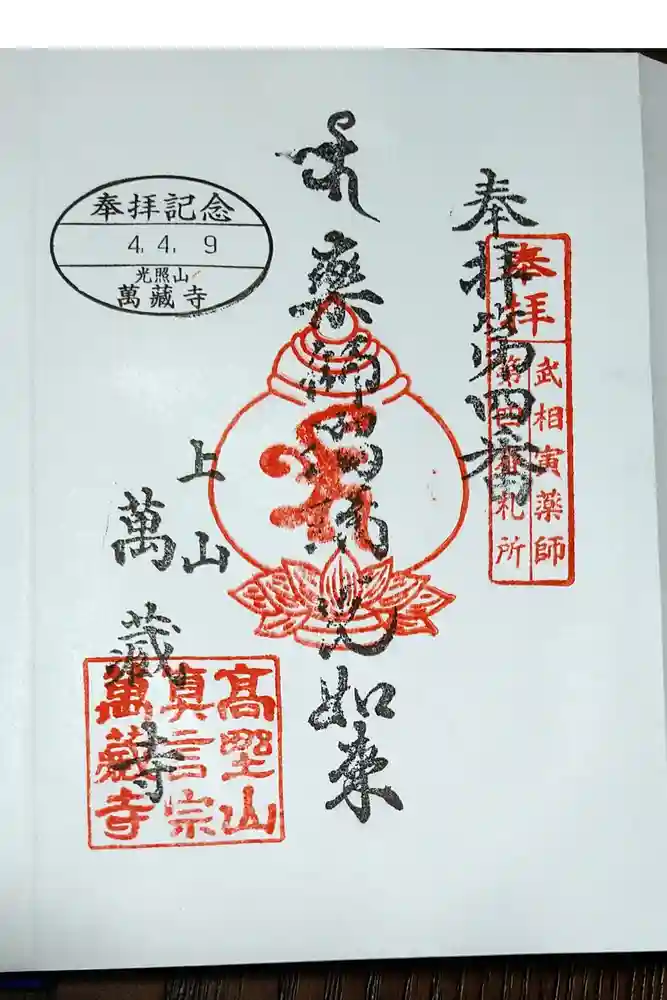 奉拝第四番
奉拝
武相寅薬師
第四番札所
藥師瑠璃光如来
上山
萬藏寺
高野山
真言宗
萬藏寺
奉拝記念
4. 4. 9
光照山
萬藏寺